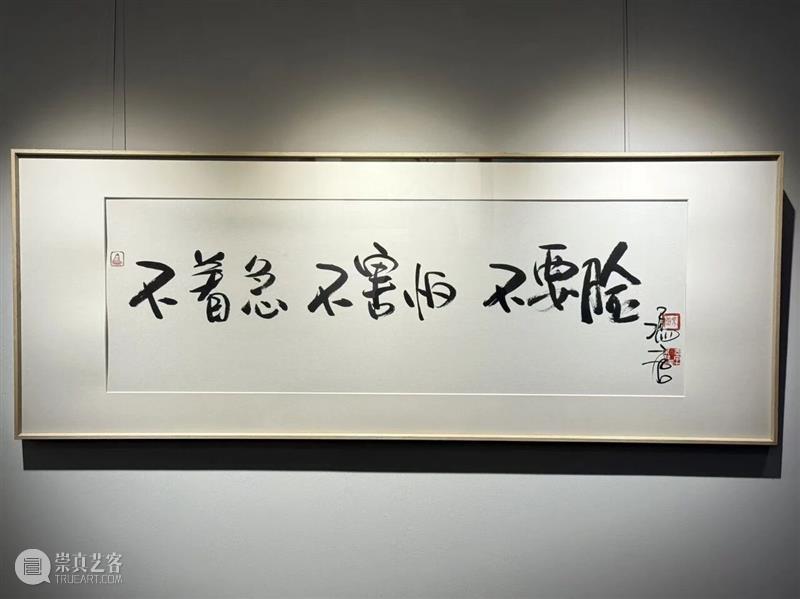 不着急 不害怕 不要脸
冯唐
崇真艺客
TRUEART.COM